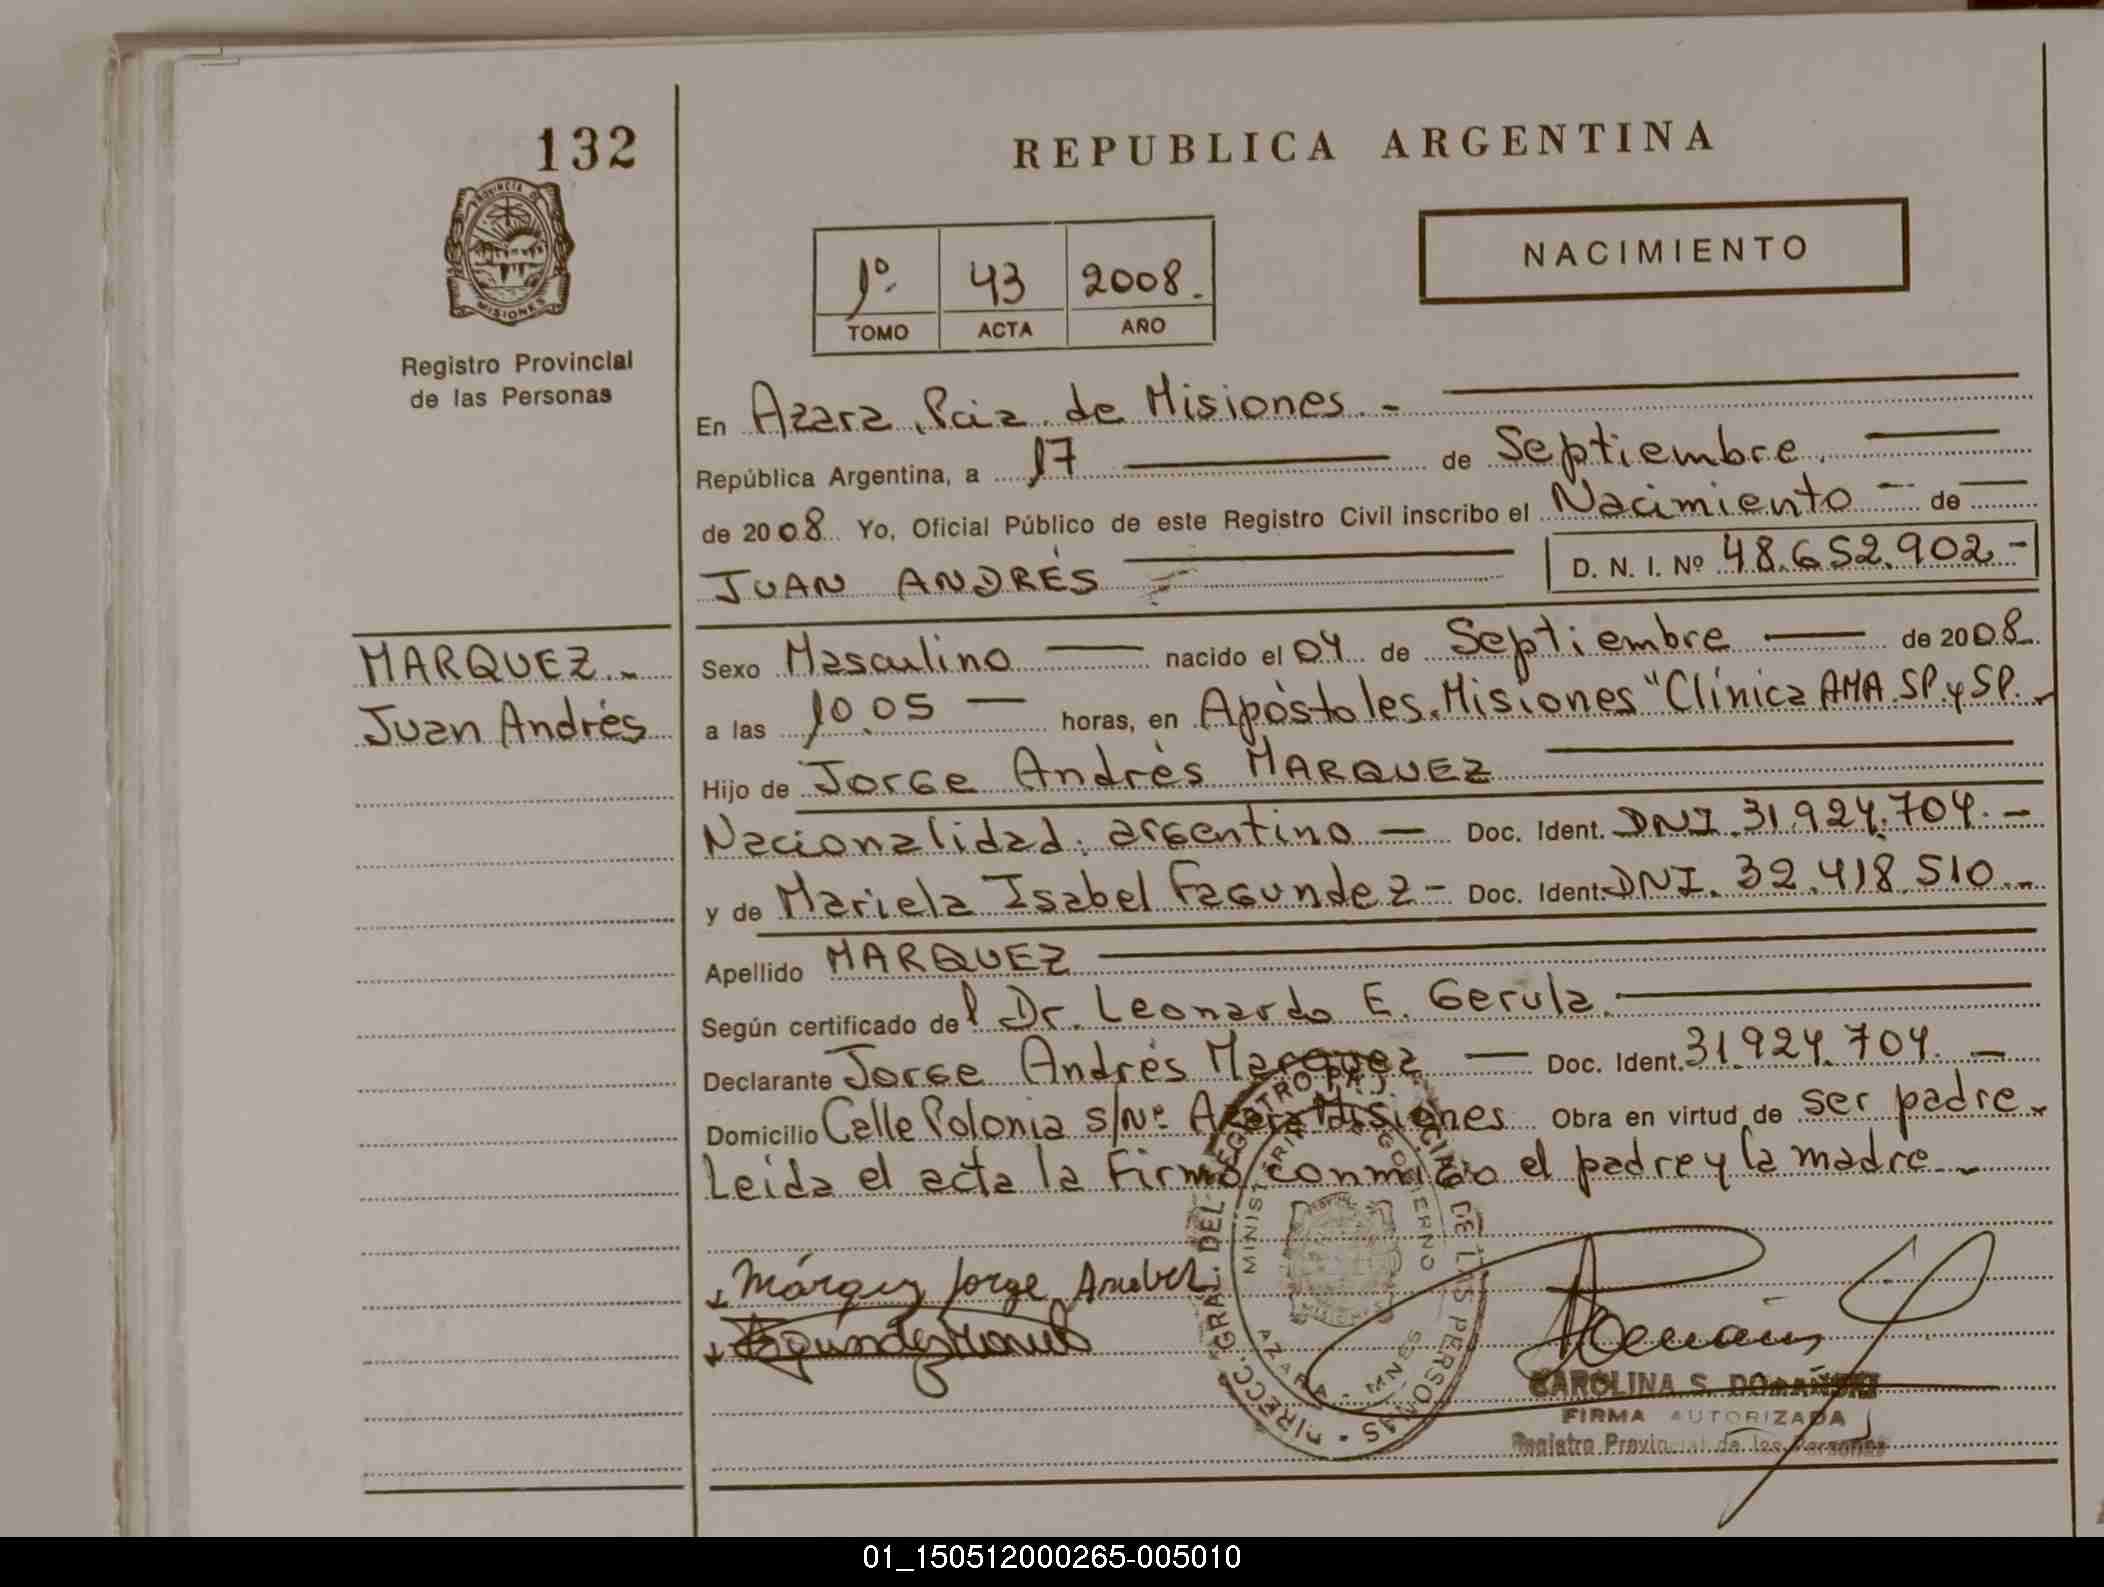 132
REPUBLICA ARGENTINA
PROVINCIA DE
MISIONES
Registro Provincial
de las Personas
1º 43 2008.
TOMO ACTA AÑO
NACIMIENTO
En Azara, Pcia. de Misiones. -
República Argentina, a 17 de Septiembre.
de 2008 Yo, Oficial Público de este Registro Civil inscribo el Nacimiento - de
JUAN ANDRÉS
D. N. I. Nº 48.652.902.-
MARQUEZ.-
Juan Andrés
Sexo Masculino nacido el 04 de Septiembre de 2008.
a las 10.05 horas, en Apóstoles. Misiones "Clínica AMA. SP. y SP.
Hijo de Jorge Andrés MARQUEZ
Nacionalidad: argentino - Doc. Ident. DNI. 31.924.704. -
y de Mariela Isabel Fagundez - Doc. Ident. DNI. 32.418.510.-
Apellido MARQUEZ
Según certificado del Dr. Leonardo E. Gerula.
Declarante Jorge Andrés Marquez - Doc. Ident. 31.924.704. -
Domicilio Calle Polonia s/Nº Azara Misiones Obra en virtud de ser padre.
Leida el acta la Firmó conmigo el padre y la madre -
Márquez Jorge
DIRECC. GRAL. DEL REGISTRO DE LAS PERSONAS
MINISTERIO GOBIERNO
AZARA - MNES
CAROLINA S.
FIRMA AUTORIZADA
Registro Provincial de las Personas
01_150512000265-005010